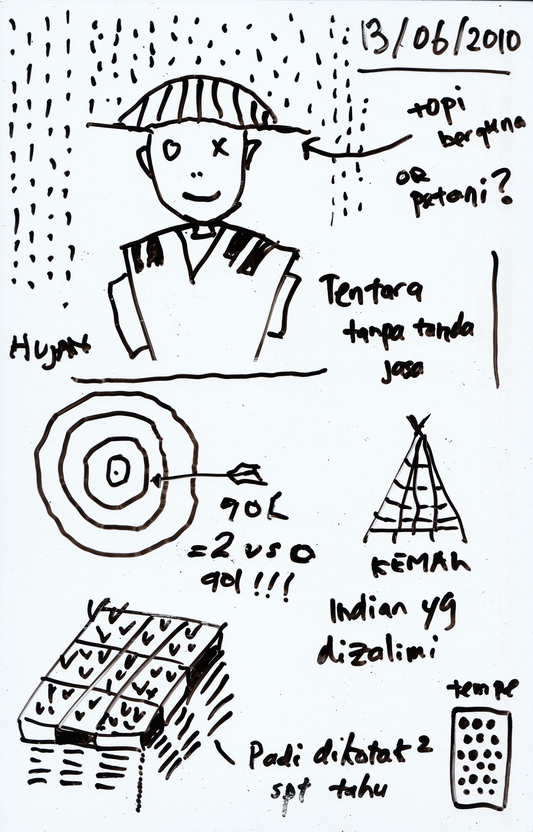 13/06/2010
topi
berguna
OR
petani?
Tentara
tanpa tanda
jasa
HUJAN
gol
=2 vs 0
gol!!!
KEMAH
Indian yg
dizalimi
tempe
Padi dikotak²
spt tahu